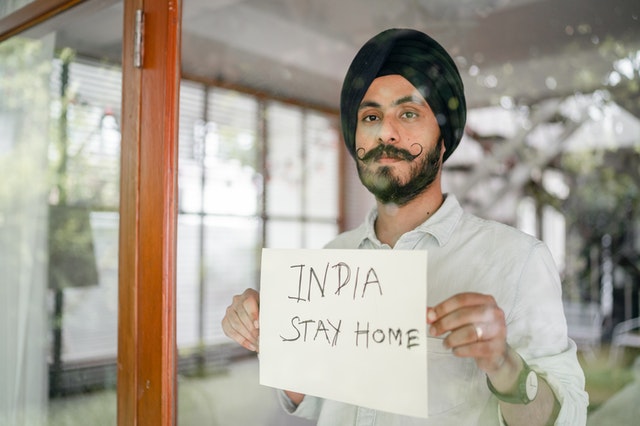 INDIA
STAY HOME